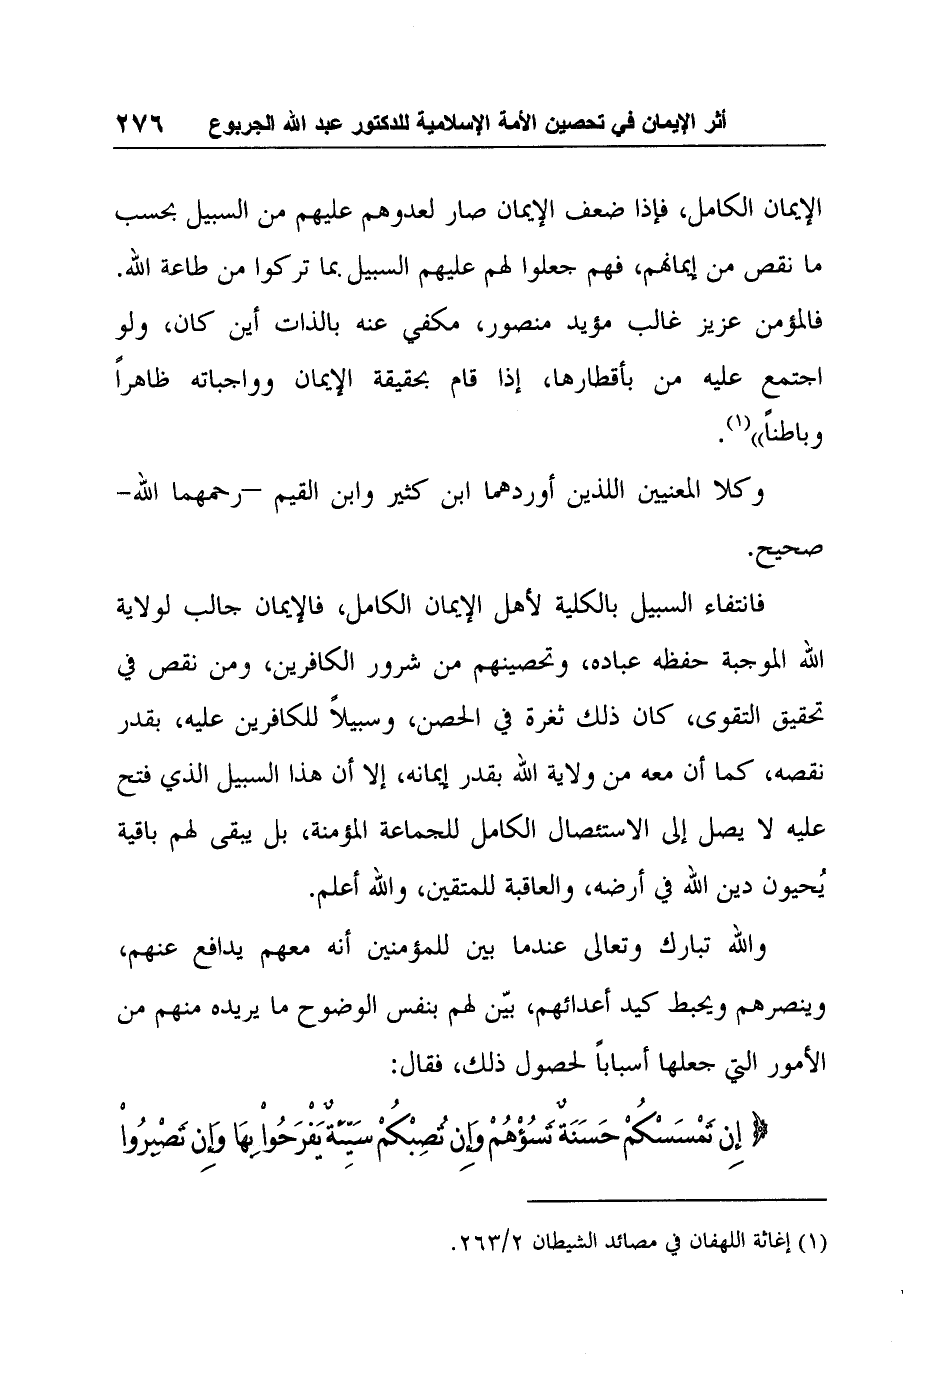 أثر الإيمان في تحصين الأمة الإسلامية للدكتور عبد الله الجربوع ٢٧٦
الإيمان الكامل، فإذا ضعف الإيمان صار لعدوهم عليهم من السبيل بحسب
ما نقص من إيمانهم، فهم جعلوا لهم عليهم السبيل بما تركوا من طاعة الله.
فالمؤمن عزيز غالب مؤيد منصور، مكفي عنه بالذات أين كان، ولو
اجتمع عليه من بأقطارها، إذا قام بحقيقة الإيمان وواجباته ظاهراً
وباطناً»(١).
وكلا المعنيين اللذين أوردهما ابن كثير وابن القيم –رحمهما الله–
صحيح.
فانتفاء السبيل بالكلية لأهل الإيمان الكامل، فالإيمان جالب لولاية
الله الموجبة حفظه عباده، وتحصينهم من شرور الكافرين، ومن نقص في
تحقيق التقوى، كان ذلك ثغرة في الحصن، وسبيلاً للكافرين عليه، بقدر
نقصه، كما أن معه من ولاية الله بقدر إيمانه، إلا أن هذا السبيل الذي فتح
عليه لا يصل إلى الاستئصال الكامل للجماعة المؤمنة، بل يبقى لهم باقية
يُحيون دين الله في أرضه، والعاقبة للمتقين، والله أعلم.
والله تبارك وتعالى عندما بين للمؤمنين أنه معهم يدافع عنهم،
وينصرهم ويحبط كيد أعدائهم، بيّن لهم بنفس الوضوح ما يريده منهم من
الأمور التي جعلها أسباباً لحصول ذلك، فقال:
﴿ إِن تَمْسَسْكُمْ حَسَنَةٌ تَسُؤْهُمْ وَإِن تُصِبْكُمْ سَيِّئَةٌ يَفْرَحُوا۟ بِهَا وَإِن تَصْبِرُوا۟
(١) إغاثة اللهفان في مصائد الشيطان ٢٦٣/٢.